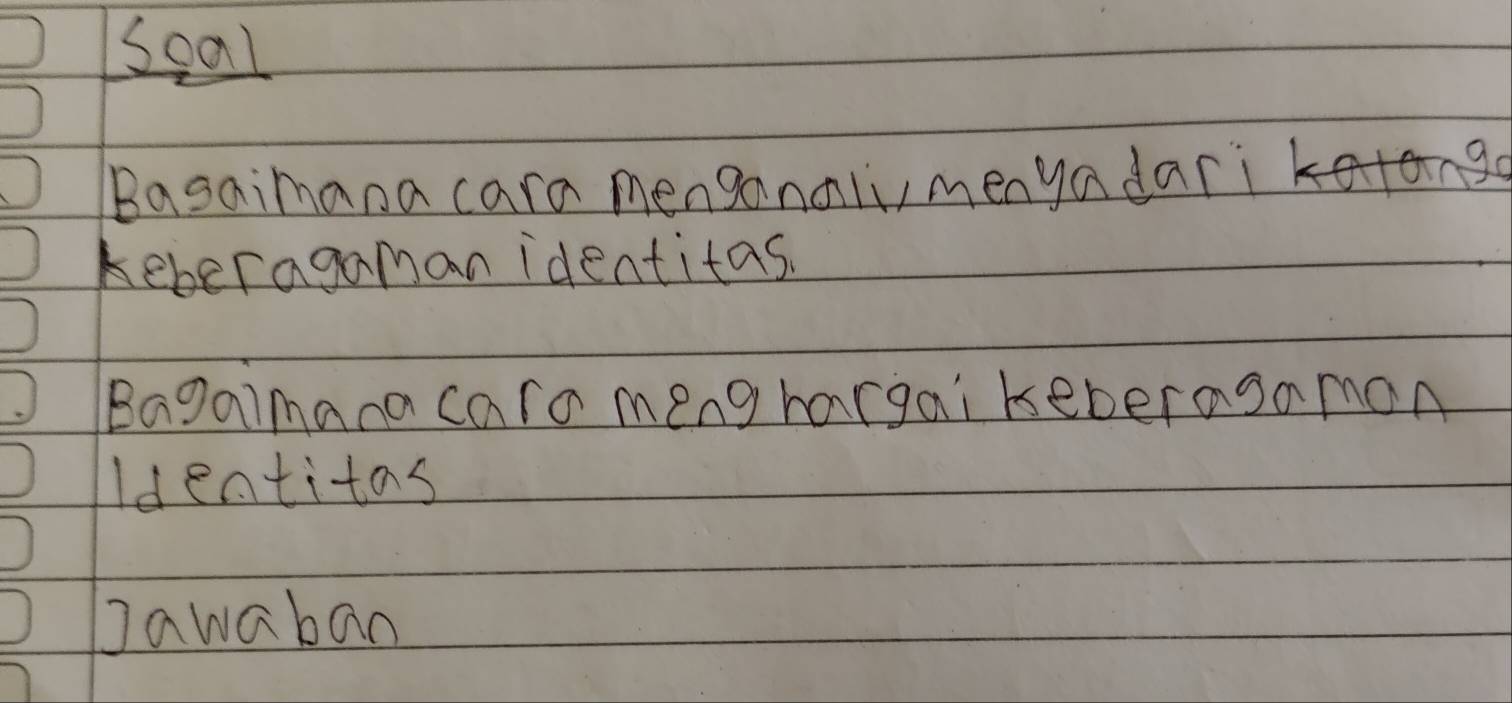 Soal
Bagaimana cara menganali, menyadari
keberagaman identitas.
Bagaimana cara menghargai keberagaman
Identitas
Jawaban